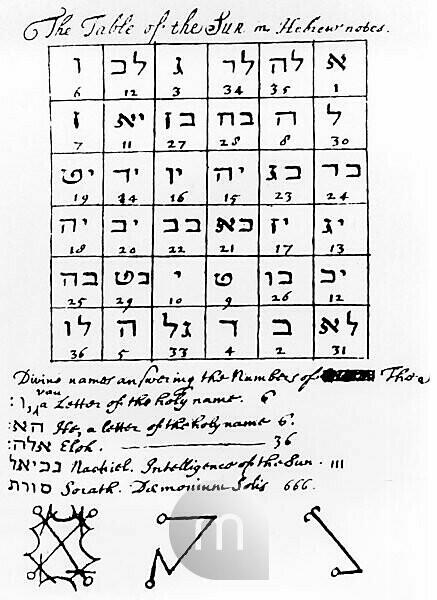 The Table of the Sun in Hebrew notes.
א לה לר ג לכ ו
6 12 3 34 35 1
ל ה בח בז יא ז
7 11 27 28 8 30
כר כג יה ין יד יט
19 14 16 15 23 24
יג יז כא כב יב יה
18 20 22 21 17 13
יב כו ט י כט כה
25 29 10 9 26 12
לא ב ד גל ה לו
36 5 33 4 2 31
Divine names answering the Numbers of The
ו: vau a Letter of the holy name. 6
הא: He, a letter of the holy name 6.
אלה: Eloh. 36
נכיאל Nachiel. Intelligence of the Sun. 111
סורת Sorath. Dæmonium Solis 666.
m